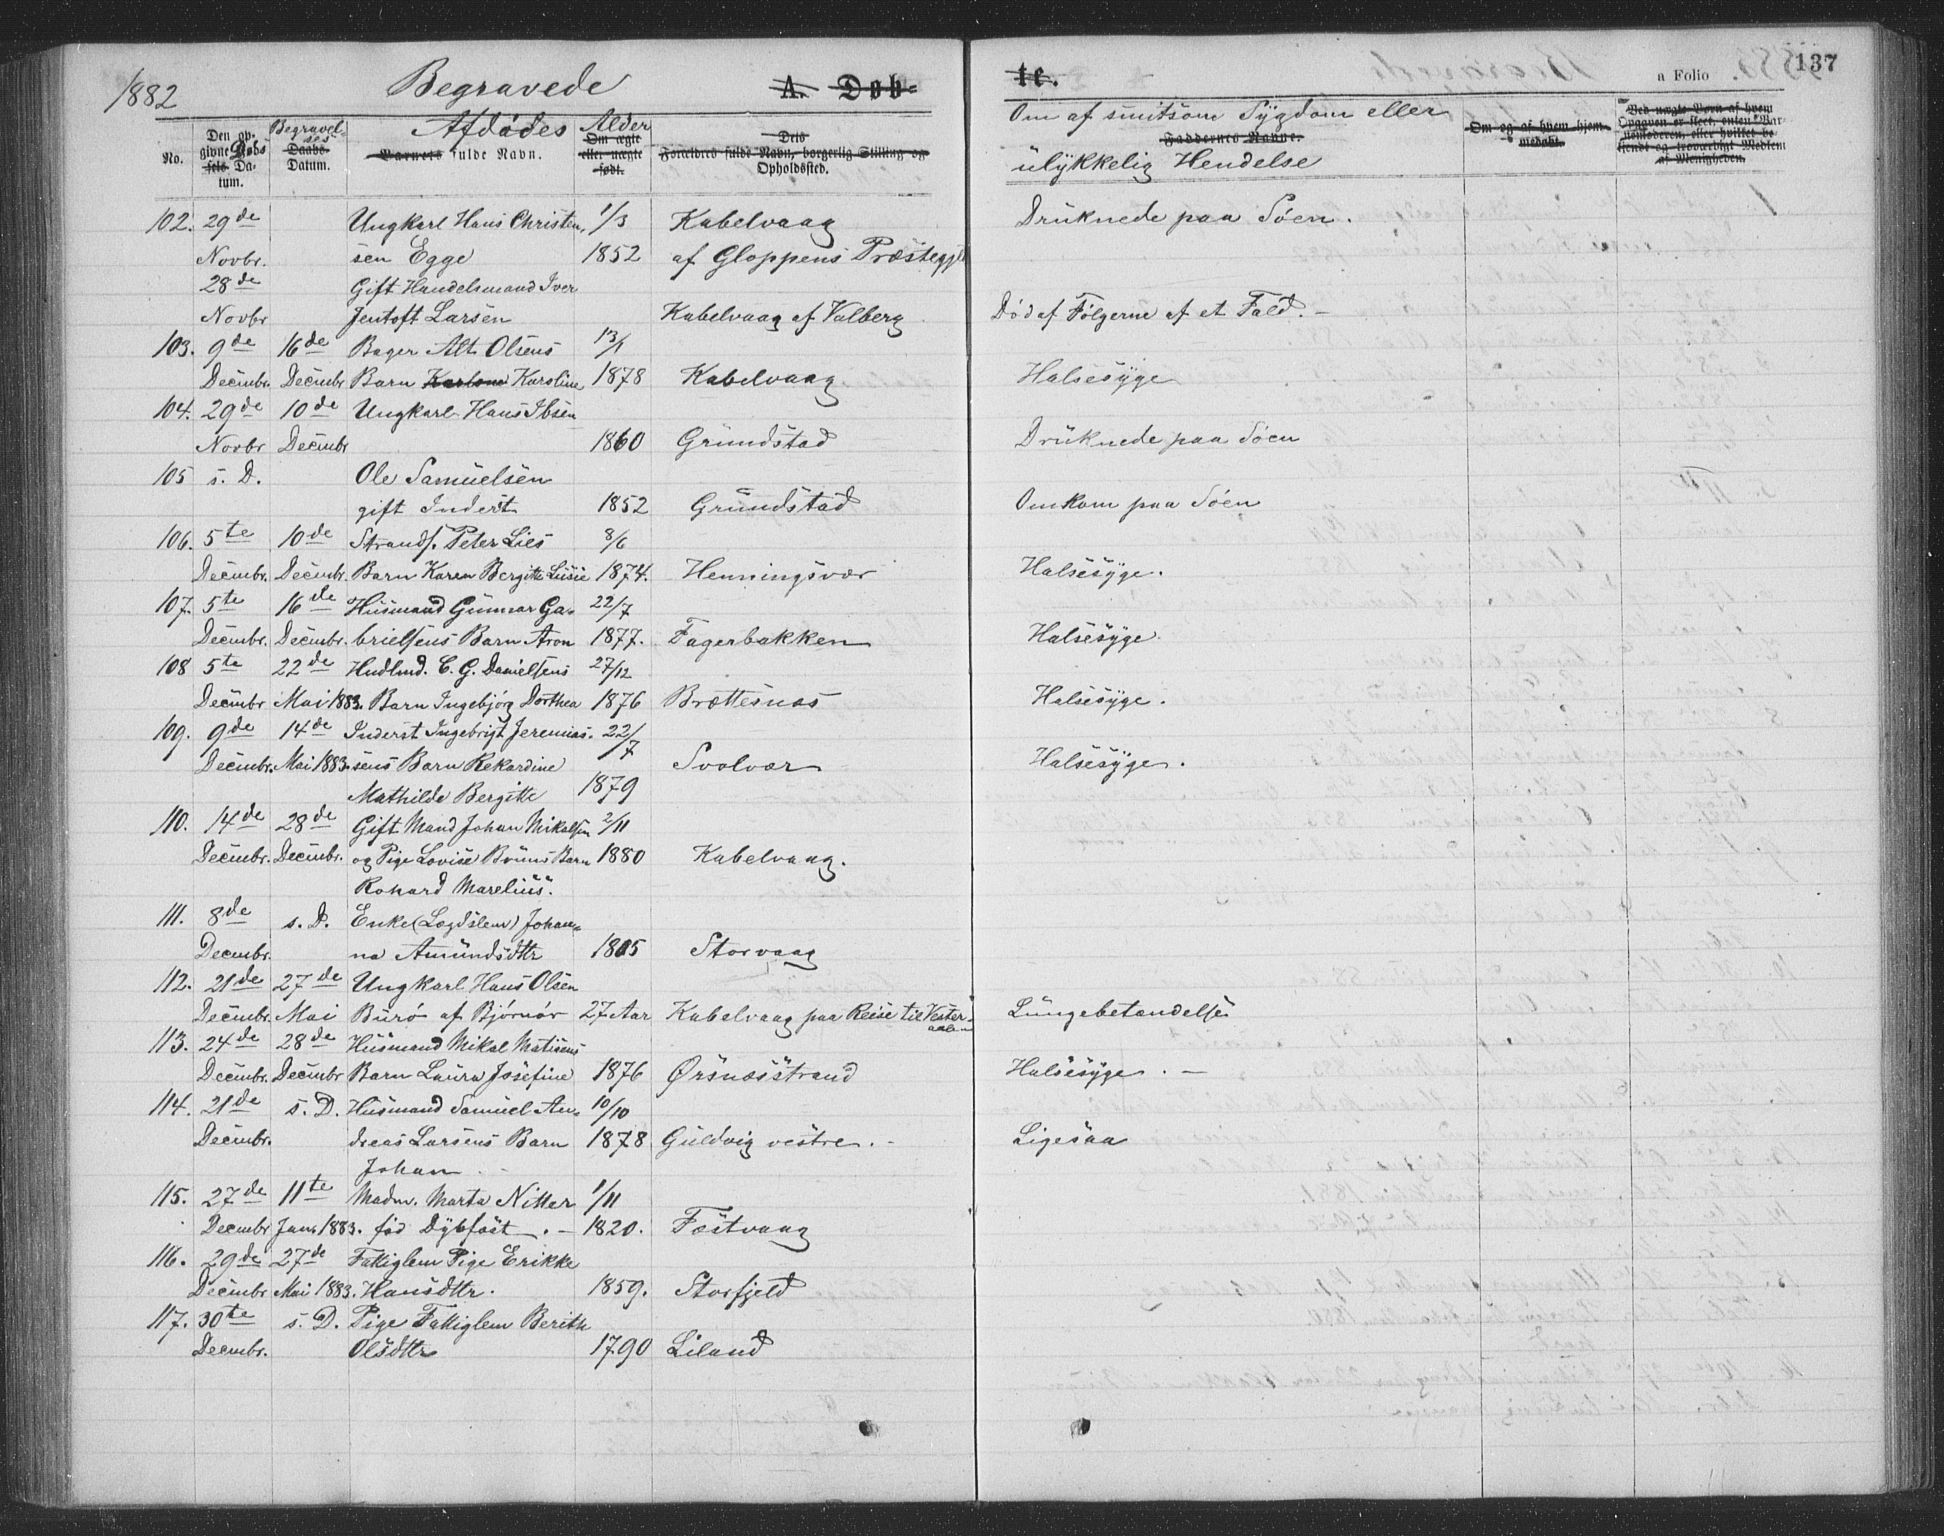 1882 Begravede A. Døb= te. a Folio 137
No. Den opgivne Døds Datum. Begravelses Datum. Afdødes fulde Navn. Alder Opholdssted. Om af smitsom Sygdom eller ulykkelig Hendelse
Om ægte eller uægte født. Dets Forældres fulde Navn, borgerlig Stilling og Faddernes Navne. Om og af hvem hjemmedøbt.
102. 29de Ungkarl Hans Christen- 1/3 Kabelvaag Druknede paa Søen.
Novbr. sen Egge 1852 af Gloppens Præstegjld
28de Gift Handelsmand Iver
Novbr Jentoft Larsen Kabelvaag af Valberg Død af Følgerne af et Fald. -
103. 9de 16de Bager Alt Olsens 13/1
Decembr. Decembr Barn Karoline 1878 Kabelvaag Halsesyge
104. 29de 10de Ungkarl Hans Ibsen
Novbr Decembr 1860 Grundstad Druknede paa Søen
105 s. D. Ole Samuelsen
gift Inderst 1852 Grundstad Omkom paa Søen
106. 5te 10de Strands. Peter Lies 8/6
Decembr. Decembr. Barn Karen Bergitte Lusie 1874. Henningsvær Halsesyge.
107. 5te 16de Husmand Gunnar Ga- 22/7
Decembr. Decembr. brielsens Barn Aron 1877. Fagerbakken Halsesyge.
108 5te 22de Hndlmd. C. G. Danielsens 27/12
Decembr Mai 1883. Barn Ingebjørg Dorthea 1876 Brættesnæs Halsesyge.
109. 9de 14de Inderst Ingebrigt Jeremias- 22/7
Decembr. Mai 1883. sens Barn Rekardine Svolvær Halsesyge.
Mathilde Bergitte 1879
110. 14de 28de Gift Mand Johan Mikalsen 2/11
Decembr. Decembr. og Pige Lovise Bruns Barn 1880 Kabelvaag.
Rokard Marelius.
111. 8de s. D. Enke (Lægdslem) Johan-
Decembr. na Amundsdttr 1805 Storvaag
112. 21de 27de Ungkarl Hans Olsen
Decembr. Mai Burø af Bjørnør 27 Aar Kabelvaag paa Reise til Vester-aalen Lungebetændelse
113. 24de 28de Husmand Mikal Matisens
Decembr. Decembr Barn Laura Josefine 1876 Ørsnæsstrand Halsesyge. -
114. 21de s. D. Husmand Samuel An- 10/10
Decembr. dreas Larsens Barn 1878 Guldvig vestre. - Ligesaa
Johan
115. 27de 11te Madm. Marta Nitter 1/11
Decembr Jan. 1883. fød Dybfest. - 1820. Festvaag
116. 29de 27de Fattiglem Pige Erikke
Decembr Mai 1883. Hansdttr. 1859. Storfjeld
117. 30te s. D. Pige Fattiglem Berith
Decembr. Olsdttr 1790 Liland